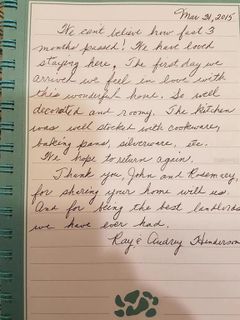 Mar 31, 2015
We can't believe how fast 3
months passed! We have loved
staying here. The first day we
arrived we feel in love with
this wonderful home. So well
decorated and roomy. The kitchen
was well stocked with cookware,
baking pans, silverware, etc.
We hope to return again.
Thank you, John and Rosemary,
for sharing your home with us.
And for being the best landlords
we have ever had.
Ray & Audrey Henderson